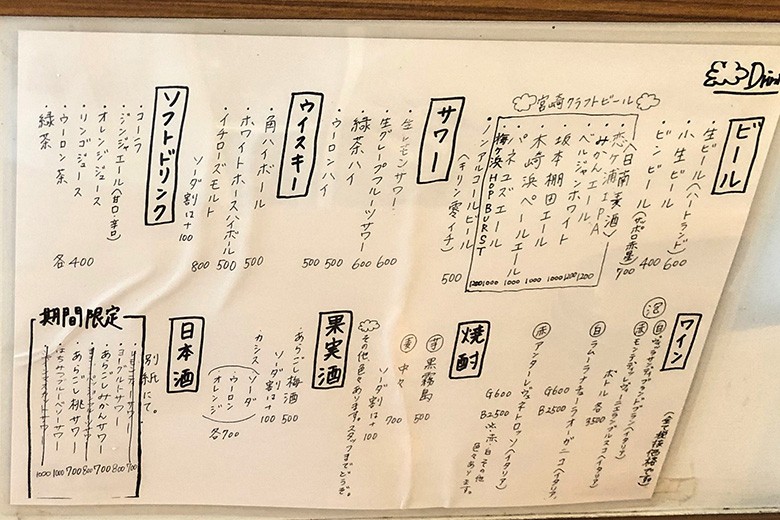 Drin
ビール
・生ビール(ハートランド) 600
・小生ビール 400
・ビンビール(サッポロ赤星) 700
宮崎クラフトビール
〈日南麦酒〉
恋ヶ浦IPA 1200
みかんエール 1200
ベルジャンホワイト 1000
坂本棚田エール 1000
木崎浜ペールエール 1000
パネユズエール 1000
梅ヶ浜HOP BURST 1200
・ノンアルコールビール
(キリン零イチ) 500
サワー
・生レモンサワー 600
・生グレープフルーツサワー 600
・緑茶ハイ 500
・ウーロンハイ 500
ウイスキー
・角ハイボール 500
・ホワイトホースハイボール 500
・イチローズモルト 800
ソーダ割は+100
ソフトドリンク
・コーラ
・ジンジャエール(甘口・辛口)
・オレンジジュース
・リンゴジュース
・ウーロン茶
・緑茶
各400
ワイン
(全て税抜価格です。)
泡
白
赤
ボトル 各3500
白
G600
B2500
赤
G600
B2500
※赤・白その他
色々あります。
焼酎
芋 黒霧島 500
麦 中々 700
ソーダ割は+100
その他色々あります。スタッフまでどうぞ。
果実酒
・あらごし梅酒 500
ソーダ割は+100
・カシス
ソーダ
ウーロン
オレンジ
各700
日本酒
別紙にて。
期間限定
ヨーグルトサワー 800
あらごしみかんサワー 700
あらごし桃サワー 700
はちみつブルーベリーサワー 1000